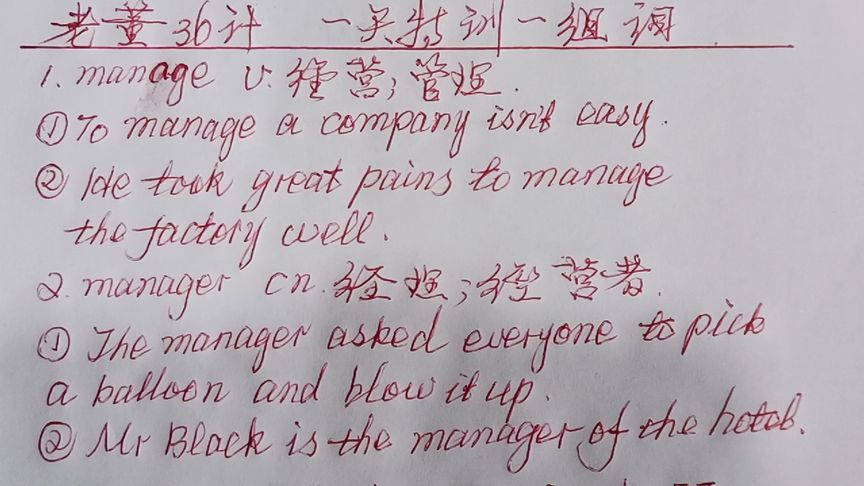 老董36计 一关特训一组词
1. manage v. 经营；管理.
①To manage a company isn't easy.
② He took great pains to manage
the factory well.
2. manager cn. 经理；经营者.
① The manager asked everyone to pick
a balloon and blow it up.
② Mr Black is the manager of the hotel.